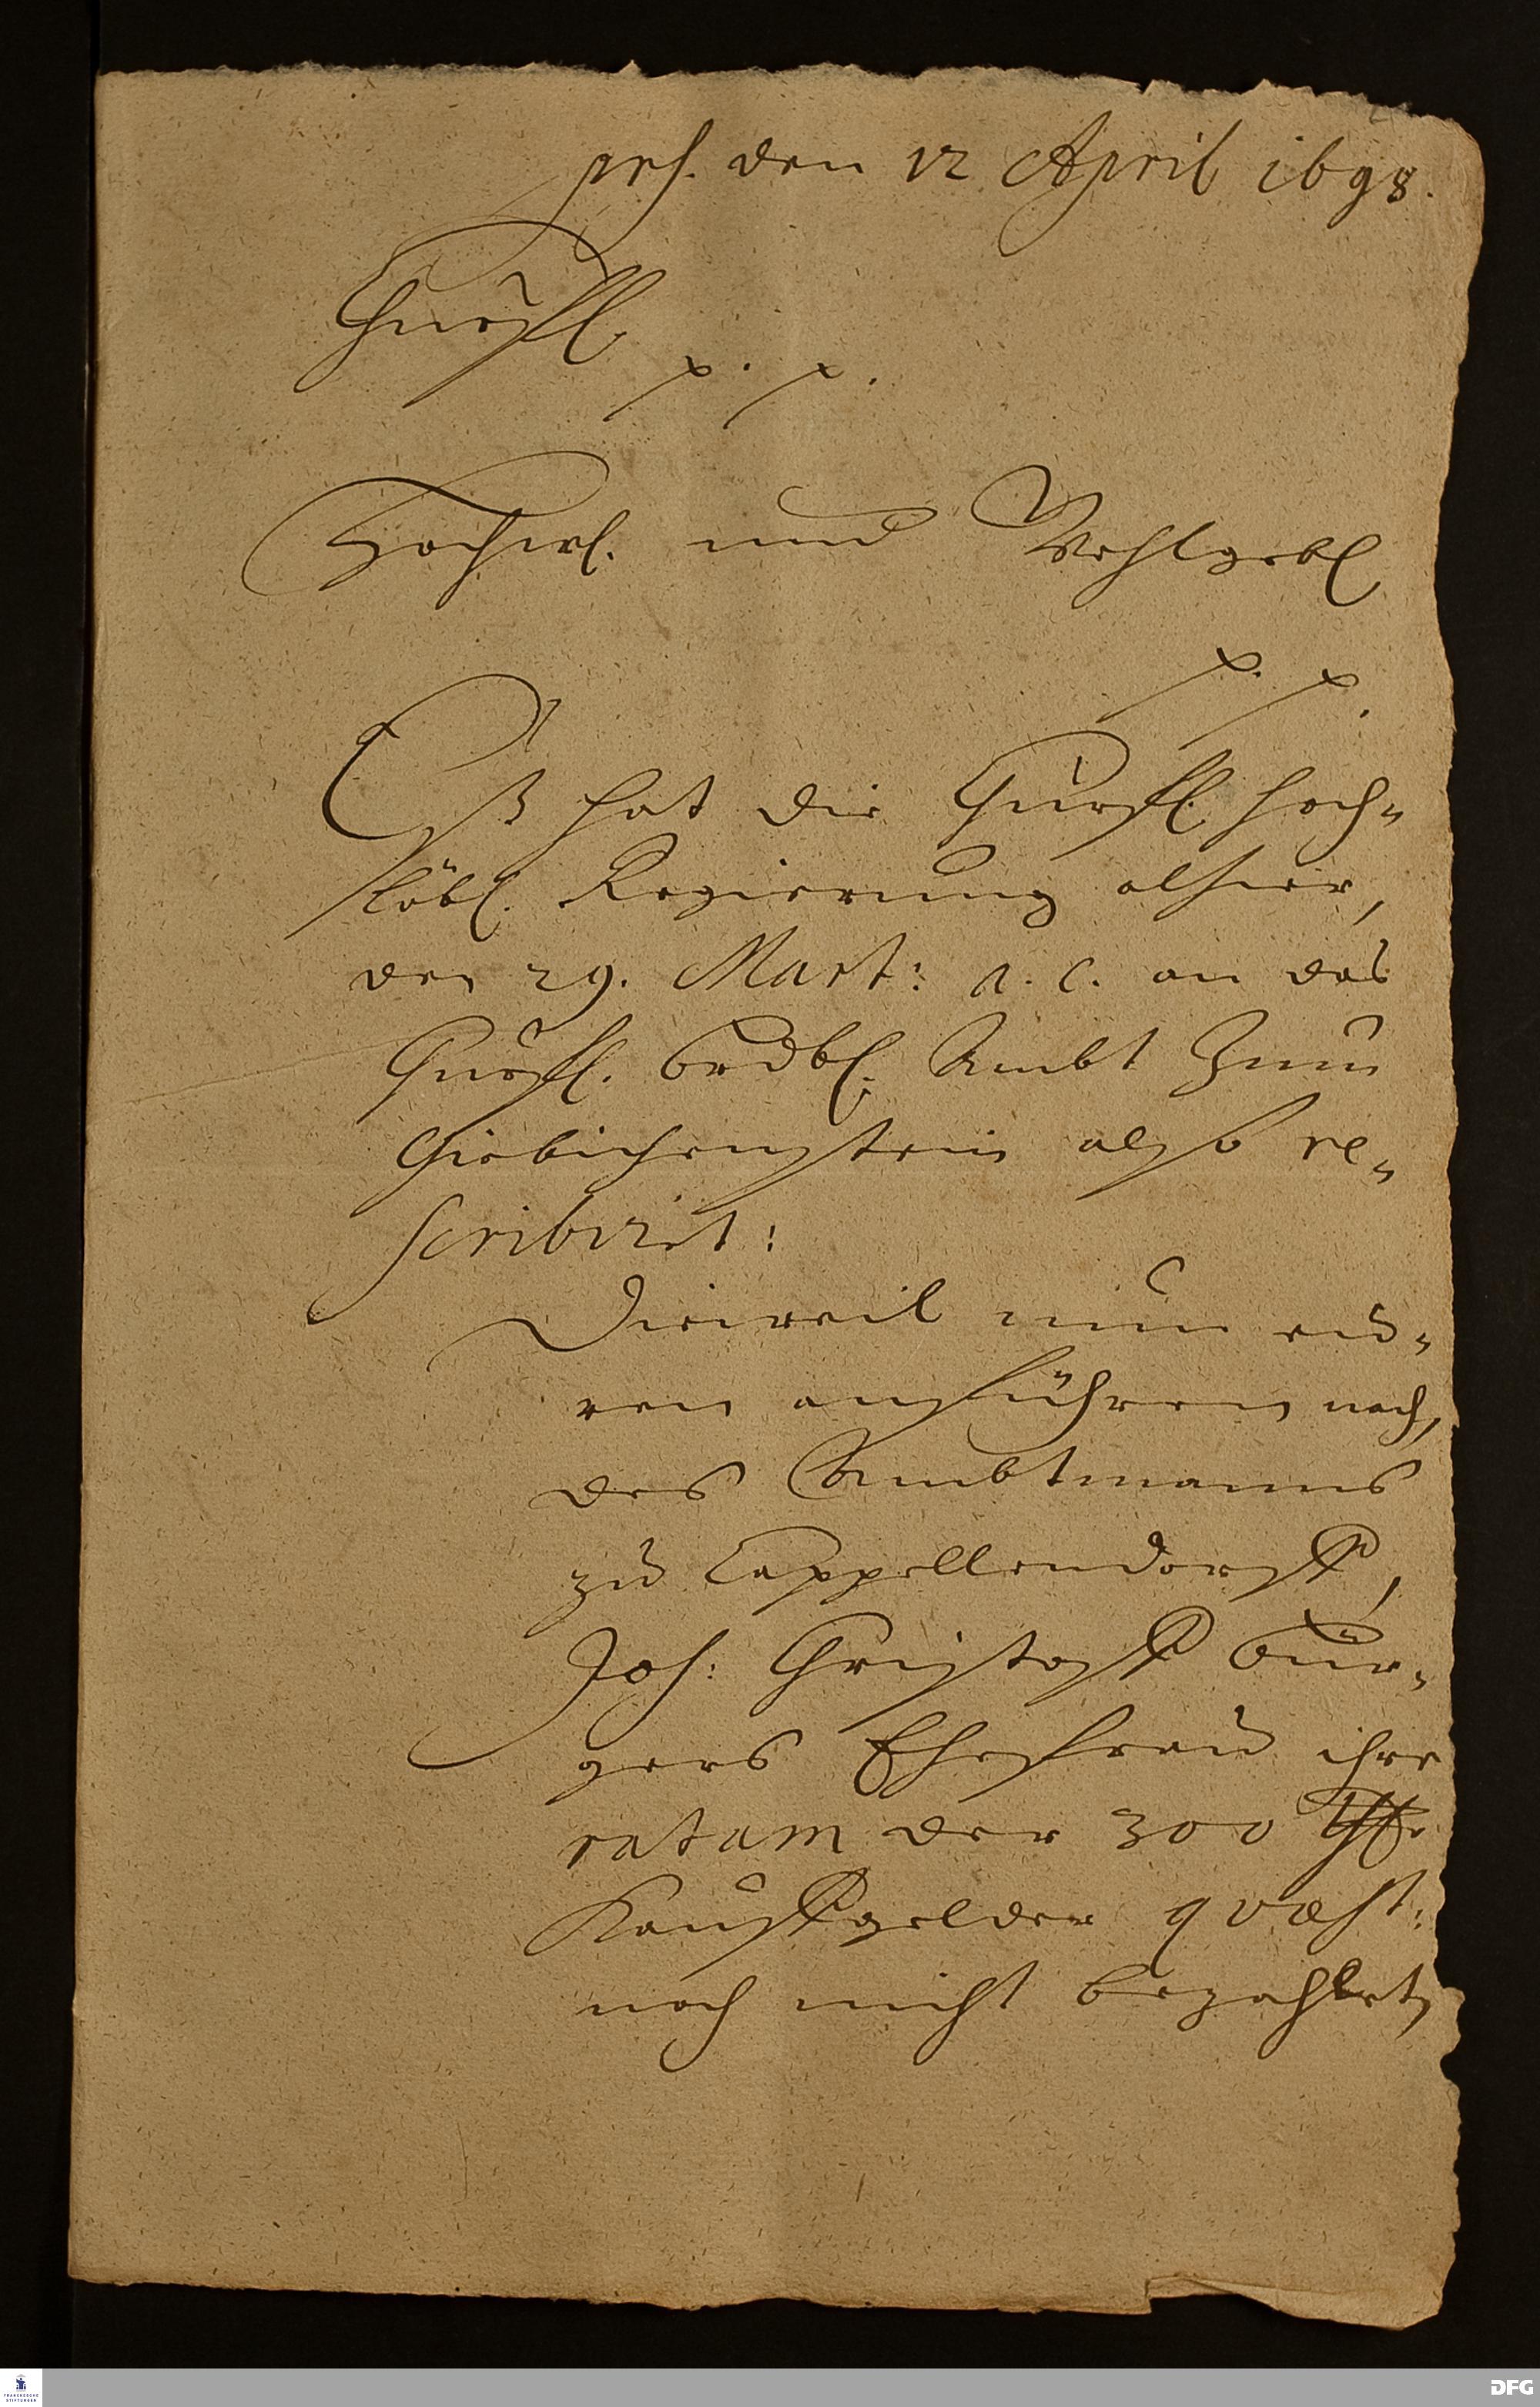 prs. den 12 April 1698.
Churfl.
p. p.
Hochwl. und Wohlgebl
p. p.
Eß hat die Churfl. hoch-
löbl. Regierung alhier,
den 29. Mart: a. c. an das
Churfl. Brdbl. Ambt Zum
Giebichenstein also re-
scribiret:
Dieweil nun eü-
ren anführen nach,
des Ambtmanns
zu Cappellendorff,
Joh: Christoff Bür-
gers Ehefrau ihre
ratam der 300 Thlr.
Kauffgelder quæst:
noch nicht bezahlet,
FRANCKESCHE
STIFTUNGEN
DFG